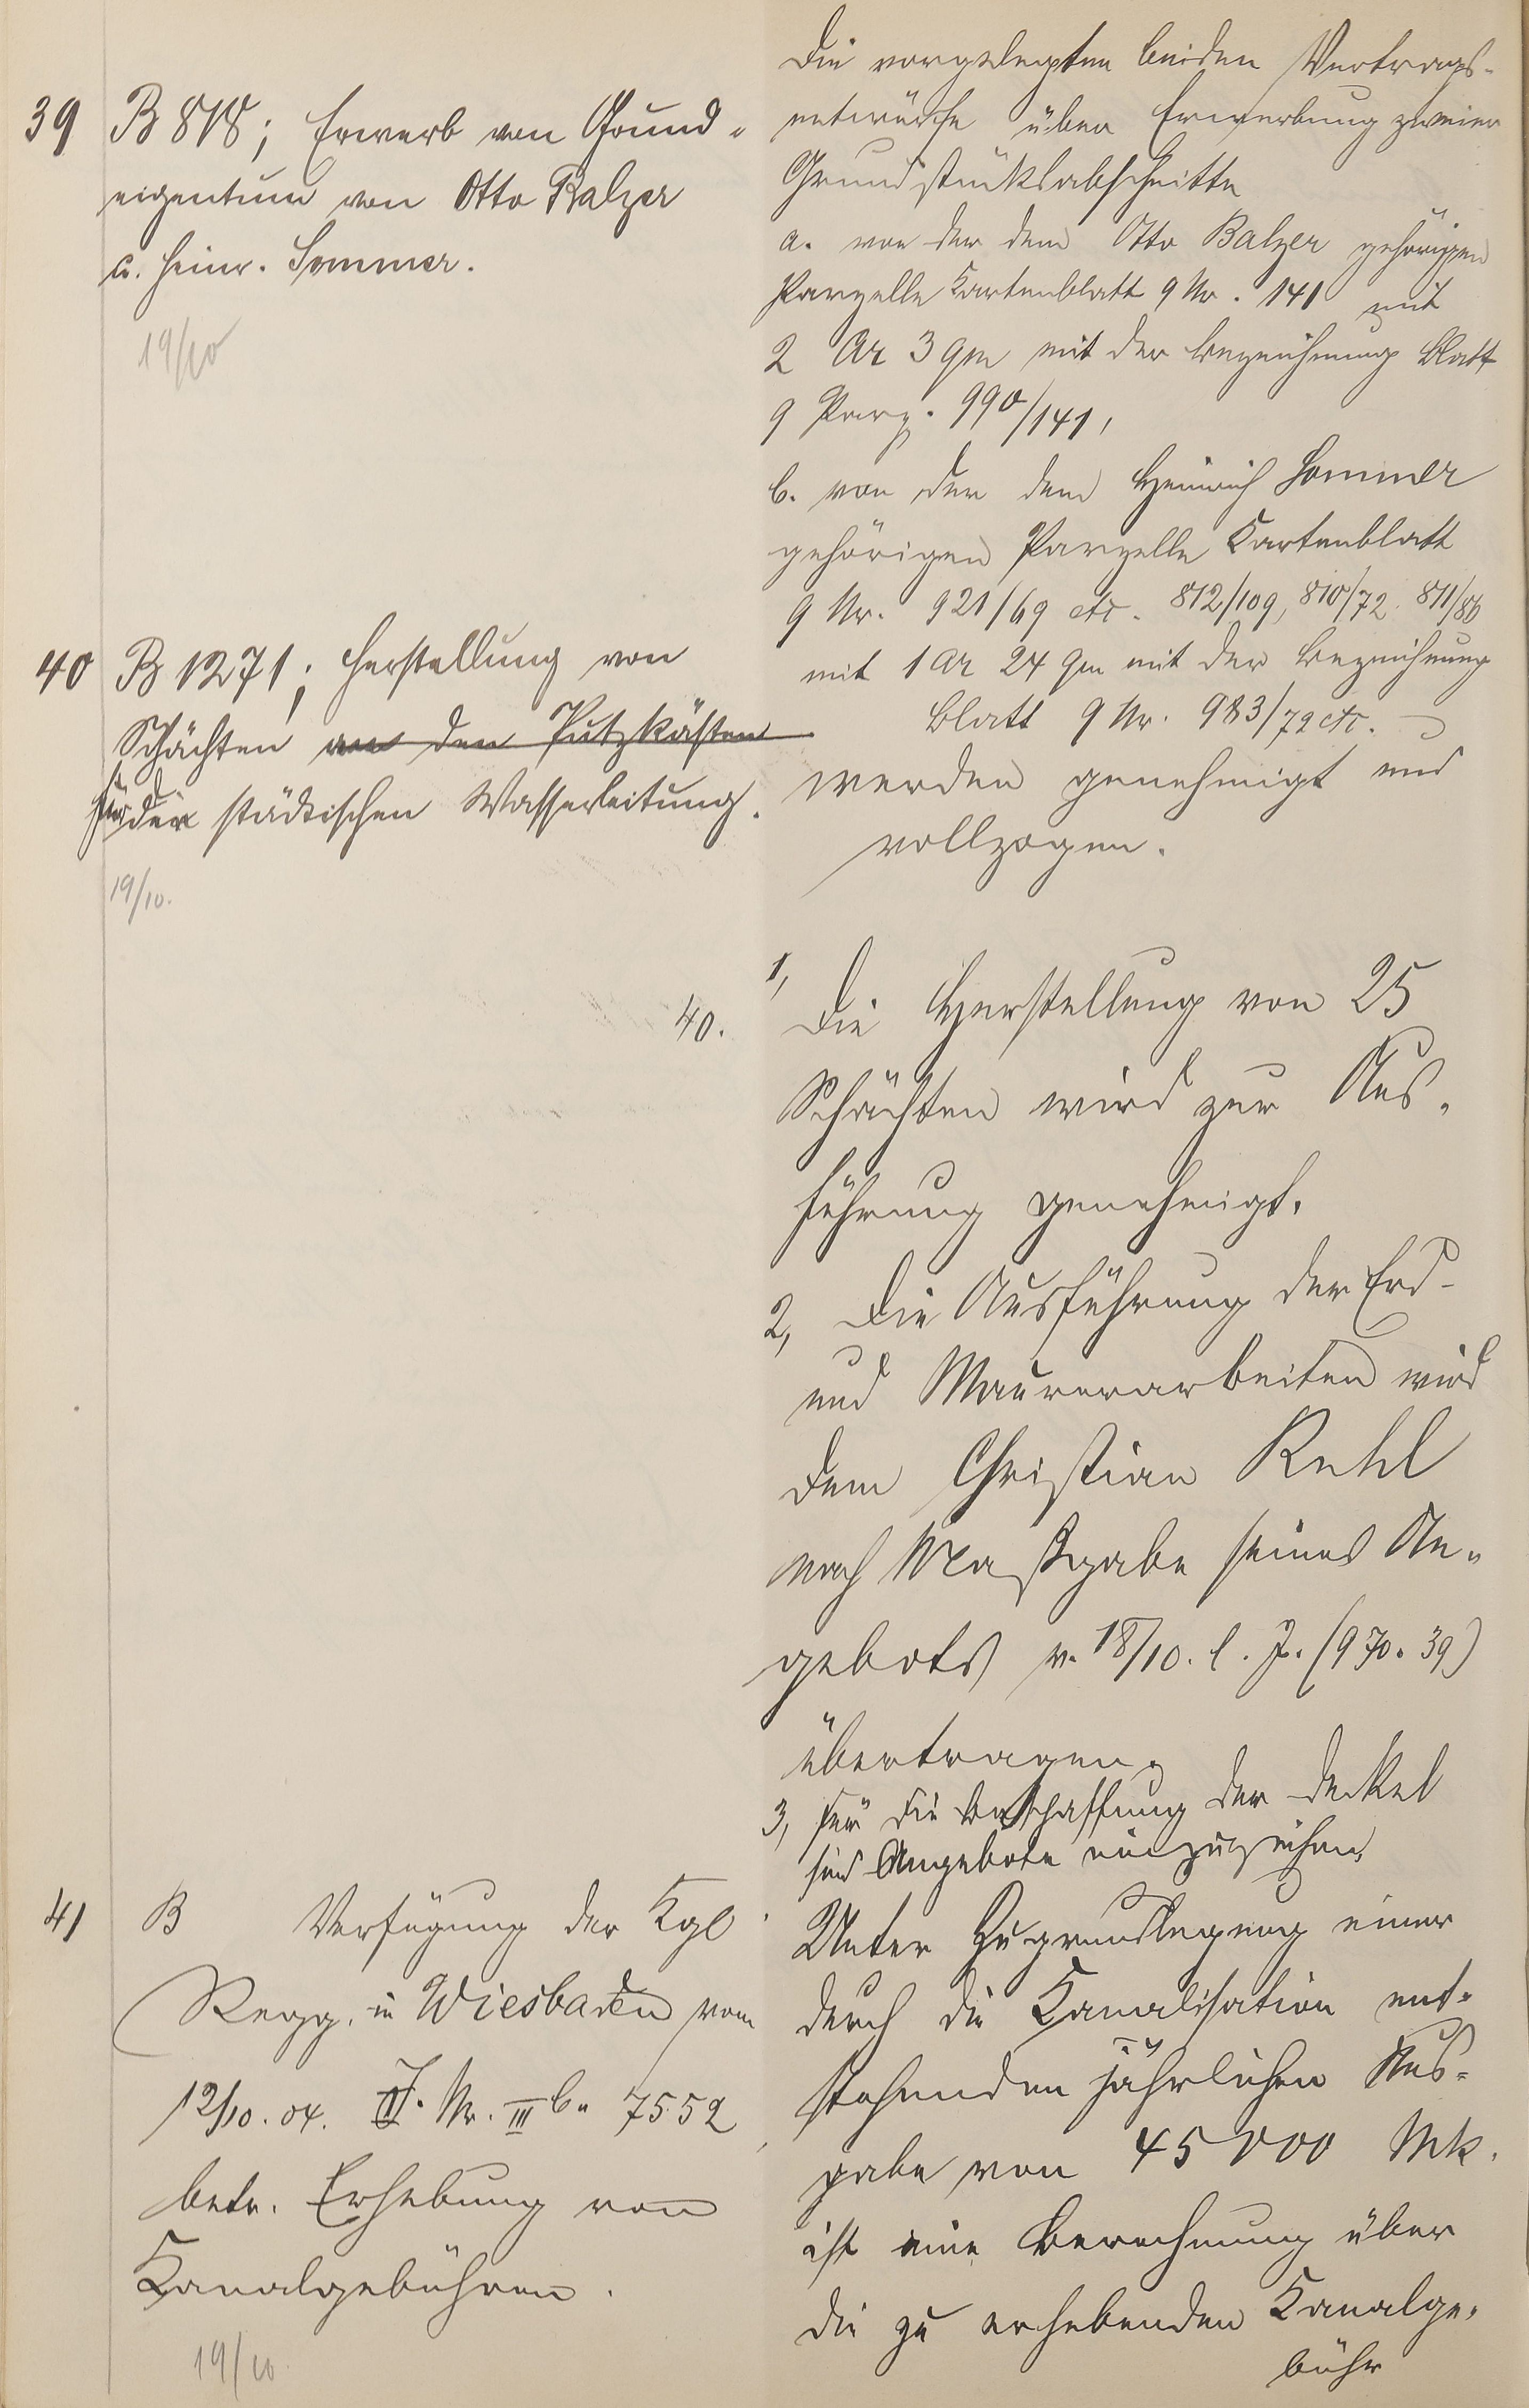 39 B 818; Erwerb von Grund-
eigentum von Otto Balzer
u. Heinr. Sommer.
19/10
Die vorgelegten beiden Vertrags-
entwürfe über Erwerbung zweier
Grundstücksabschnitte
a. von der dem Otto Balzer gehörigen
Parzelle Kartenblatt 9 Nr. 141 mit
2 Ar 3 qm mit der Bezeichnung Blatt
9 Parz. 990/141,
b. von der dem Heinrich Sommer
gehörigen Parzelle Kartenblatt
9 Nr. 921/69 etc. 812/109, 810/72 811/86
mit 1 Ar 24 qm mit der Bezeichnung
Blatt 9 Nr. 983/72 etc.
werden genehmigt und
vollzogen.
40 B 1271; Herstellung von
Schächten an den Putzkästen
für die städtischen Wasserleitung.
19/10.
40. 1, Die Herstellung von 25
Schächten wird zur Aus-
führung genehmigt.
2, Die Ausführung der Erd-
und Maurerarbeiten wird
dem Christian Kehl
nach Maßgabe seines An-
gebots v. 18/10. l. J. (970.39)
übertragen.
3, Für die Beschaffung der Deckel
sind Angebote einzuziehen.
41 B Verfügung der Kgl.
Regg. in Wiesbaden vom
12/10. 04. J. Nr. III b. 7552
betr. Erhebung von
Kanalgebühren.
19/10
Unter Zugrundlegung einer
durch die Kanalisation ent-
stehenden jährlichen Aus-
gabe von 45000 Mk.
ist eine Berechnung über
die zu erhebenden Kanalge-
bühr